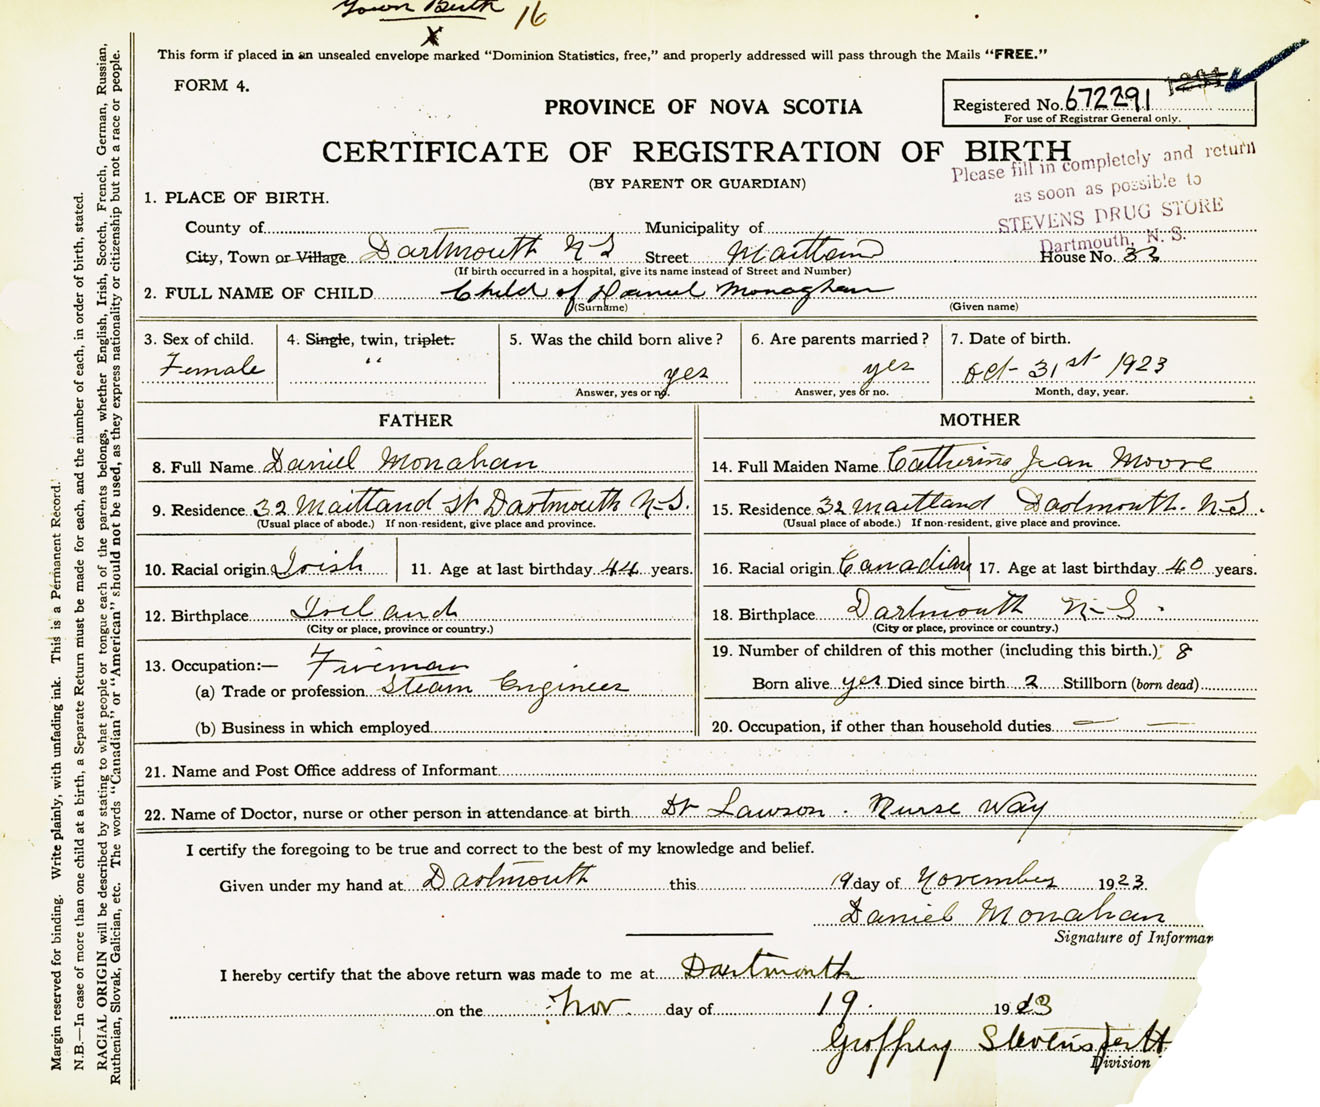 Town Birth 16
x
This form if placed in an unsealed envelope marked “Dominion Statistics, free,” and properly addressed will pass through the Mails “FREE.”
FORM 4.
PROVINCE OF NOVA SCOTIA
Registered No. 672291
For use of Registrar General only.
CERTIFICATE OF REGISTRATION OF BIRTH
(BY PARENT OR GUARDIAN)
Please fill in completely and return
as soon as possible to
STEVENS DRUG STORE
Dartmouth, N. S.
1. PLACE OF BIRTH.
County of Municipality of
City, Town or Village Dartmouth N-S Street Maitland House No. 32
(If birth occurred in a hospital, give its name instead of Street and Number)
2. FULL NAME OF CHILD Child of Daniel Monaghan
(Surname) (Given name)
3. Sex of child. Female
4. Single, twin, triplet. “
5. Was the child born alive? yes
Answer, yes or no.
6. Are parents married? yes
Answer, yes or no.
7. Date of birth. Oct- 31st 1923
Month, day, year.
FATHER
8. Full Name Daniel Monahan
9. Residence 32 Maitland St Dartmouth N-S.
(Usual place of abode.) If non-resident, give place and province.
10. Racial origin Irish 11. Age at last birthday 44 years.
12. Birthplace Ireland
(City or place, province or country.)
13. Occupation:— Fireman
(a) Trade or profession Steam Engineer
(b) Business in which employed
MOTHER
14. Full Maiden Name Catherine Jean Moore
15. Residence 32 Maitland Dartmouth. N-S.
(Usual place of abode.) If non-resident, give place and province.
16. Racial origin Canadian 17. Age at last birthday 40 years.
18. Birthplace Dartmouth N-S.
(City or place, province or country.)
19. Number of children of this mother (including this birth.) 8
Born alive yes Died since birth 2 Stillborn (born dead)
20. Occupation, if other than household duties — —
21. Name and Post Office address of Informant
22. Name of Doctor, nurse or other person in attendance at birth Dr Lawson. Nurse Way
I certify the foregoing to be true and correct to the best of my knowledge and belief.
Given under my hand at Dartmouth this 19 day of November 1923
Daniel Monahan
Signature of Informan
I hereby certify that the above return was made to me at Dartmouth
on the Nov day of 19. 1923
Geoffrey Stevens
Division
Margin reserved for binding. Write plainly, with unfading ink. This is a Permanent Record.
N.B.—In case of more than one child at a birth, a Separate Return must be made for each, and the number of each, in order of birth, stated.
RACIAL ORIGIN will be described by stating to what people or tongue each of the parents belongs, whether English, Irish, Scotch, French, German, Russian,
Ruthenian, Slovak, Galician, etc. The words “Canadian” or “American” should not be used, as they express nationality or citizenship but not a race or people.